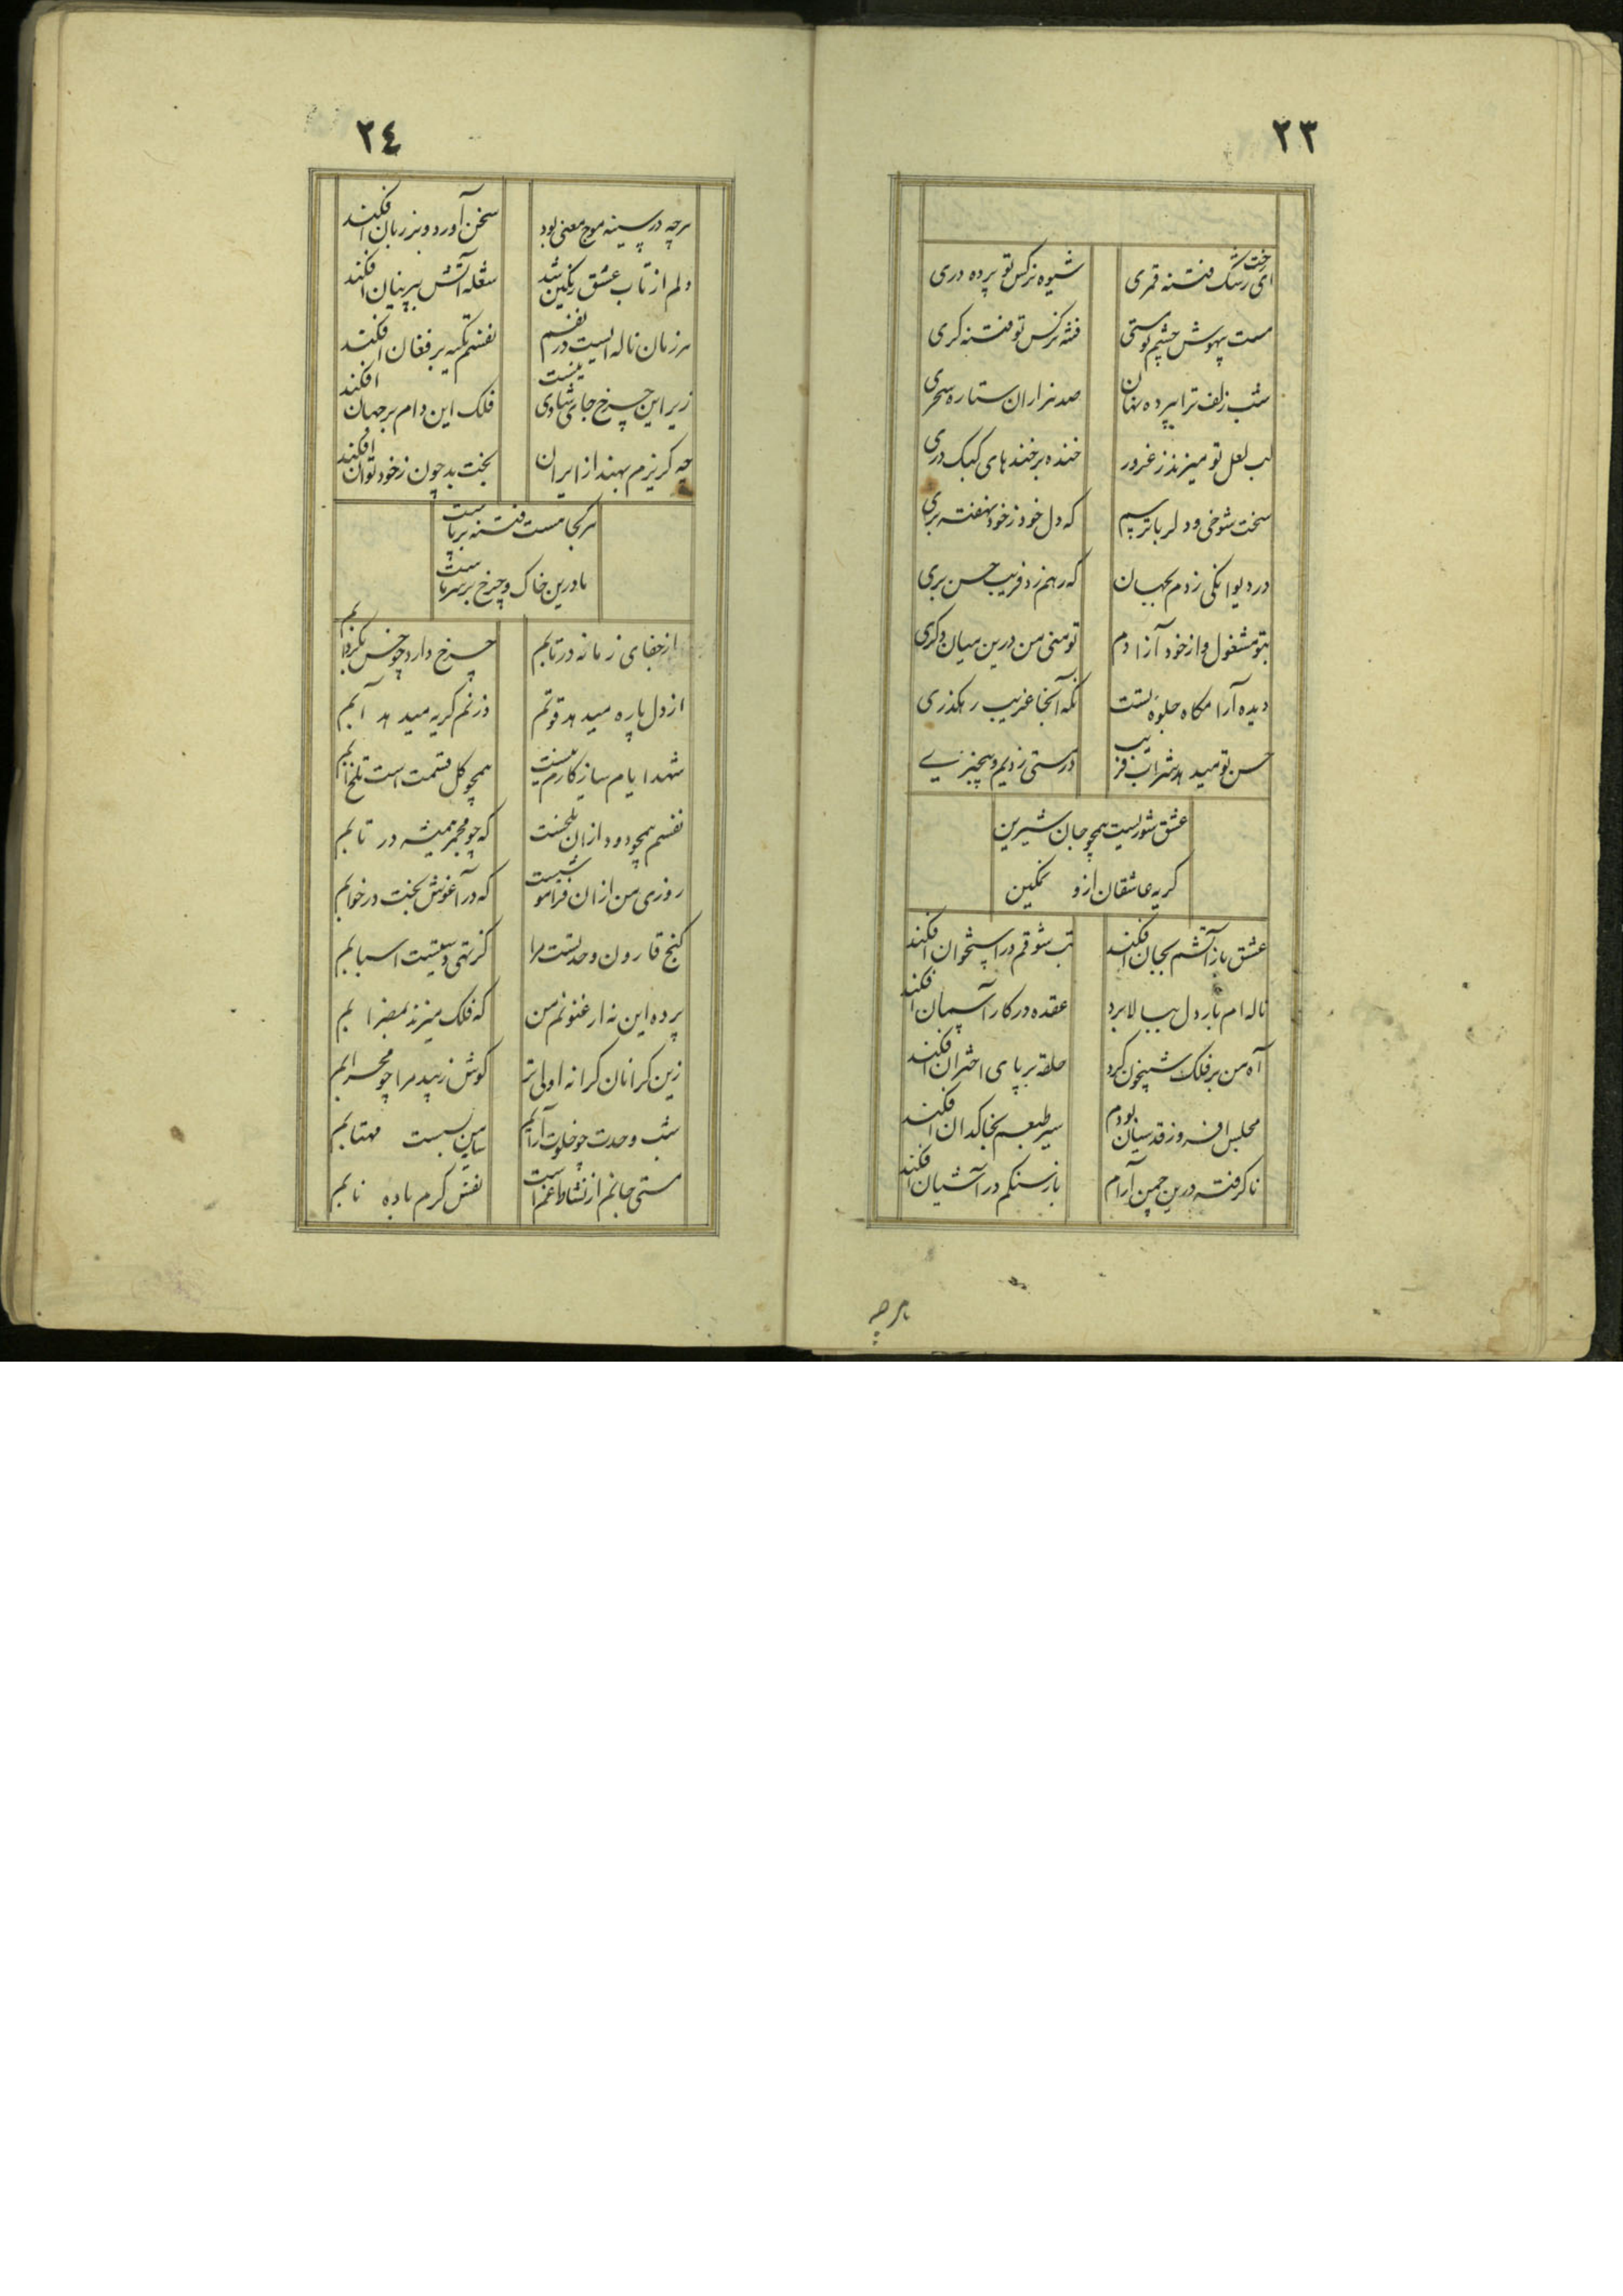 ٢٣
ای رخت رشک فتنه قمری
شیوه نرکس تو پرده دری
مست بیهوش چشم تو مستی
فتنه نرکس تو فتنه کری
شب زلف ترا بپرده نهان
صد هزاران ستاره سحری
لب لعل تو میزند ز غرور
خنده بر خندهای کبک دری
سخت شوخی و دلربا ترسم
که دل خود ز خود نهفته بری
در دیوانکی زدم بجهان
که رهم زد فریب حسن پری
بتو مشغول و از خود آزادم
تو منی من درین میان دکری
دیده آرامکاه جلوه تست
نکه آنجا غریب رهکذری
حسن تو میدهد شراب فریب
در مستی زدیم و بیخبری
عشق شوریست همچو جان شیرین
کریه عاشقان ازو نمکین
عشق باز آتشم بجان افکند
تب شوقم در استخوان افکند
ناله ام بار دل ببالا برد
عقده در کار آسمان افکند
آه من بر فلک شبیخون کرد
حلقه بر پای اختران افکند
مجلس افروز قدسیان بودم
سیر طبعم بخاکدان افکند
ناکرفته درین چمن آرام
باز سنکم در آشیان افکند
هرچه
٢٤
هرچه در سینه موج معنی بود
سخن آورد و بر زبان افکند
دلم از تاب عشق رنکین شد
شعله آتش بپرنیان افکند
هر زمان ناله ایست در نفسم
نفسم تکیه بر فغان افکند
زیر این چرخ جای شادی نیست
فلک این دام بر جهان افکند
چه کریزم بهند از ایران
بخت بد چون ز خود توان افکند
هر کجا مست فتنه برپاست
ما درین خاک و چرخ بر سر ماست
از جفای زمانه در تابم
چرخ دارد چو خس بکردابم
از دل پاره میدهد قوتم
وز نم کریه میدهد آبم
شهد ایام سازکارم نیست
همچو کل قسمت است تلخ آبم
نفسم همچو دود ازان تلخست
که چو مجمر همیشه در تابم
روزی من ازان فراموشیست
که در آغوش بخت در خوابم
کنج قارون وحدتست مرا
کز تهی دستیست اسبابم
پرده این نه ارغنونم من
که فلک میزند بمضرابم
زین کرانان کرانه اولی تر
کوش زیبد مرا چو محرابم
شب وحدت چو خلوت آرایم
سایه من بست مهتابم
مستی جانم از نشاط غم است
نفس کرم باده نابم